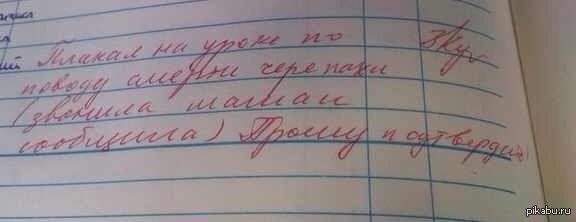 Плакал на уроке по
поводу смерти черепахи
(звонила мама и
сообщила) Прошу подтвердить
pikabu.ru